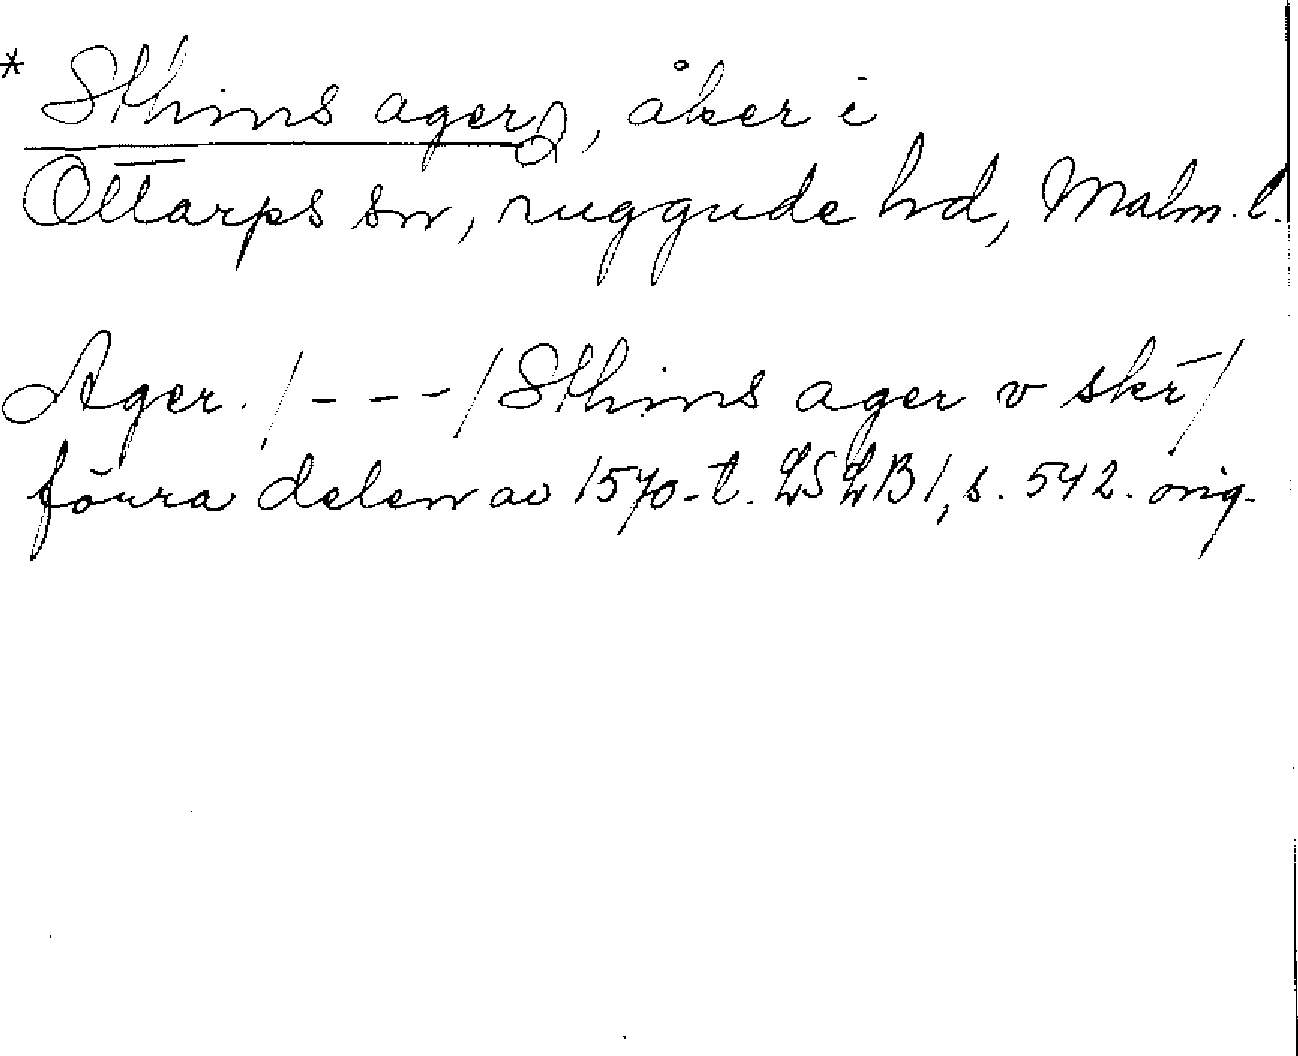 * Sthins ager, åker i
Ottarps sn, ruggude hd, Malm. l.
Ager. /---/ Sthins ager v skr̄/
förra delen av 1570-t. LSLB1, s. 542. orig.